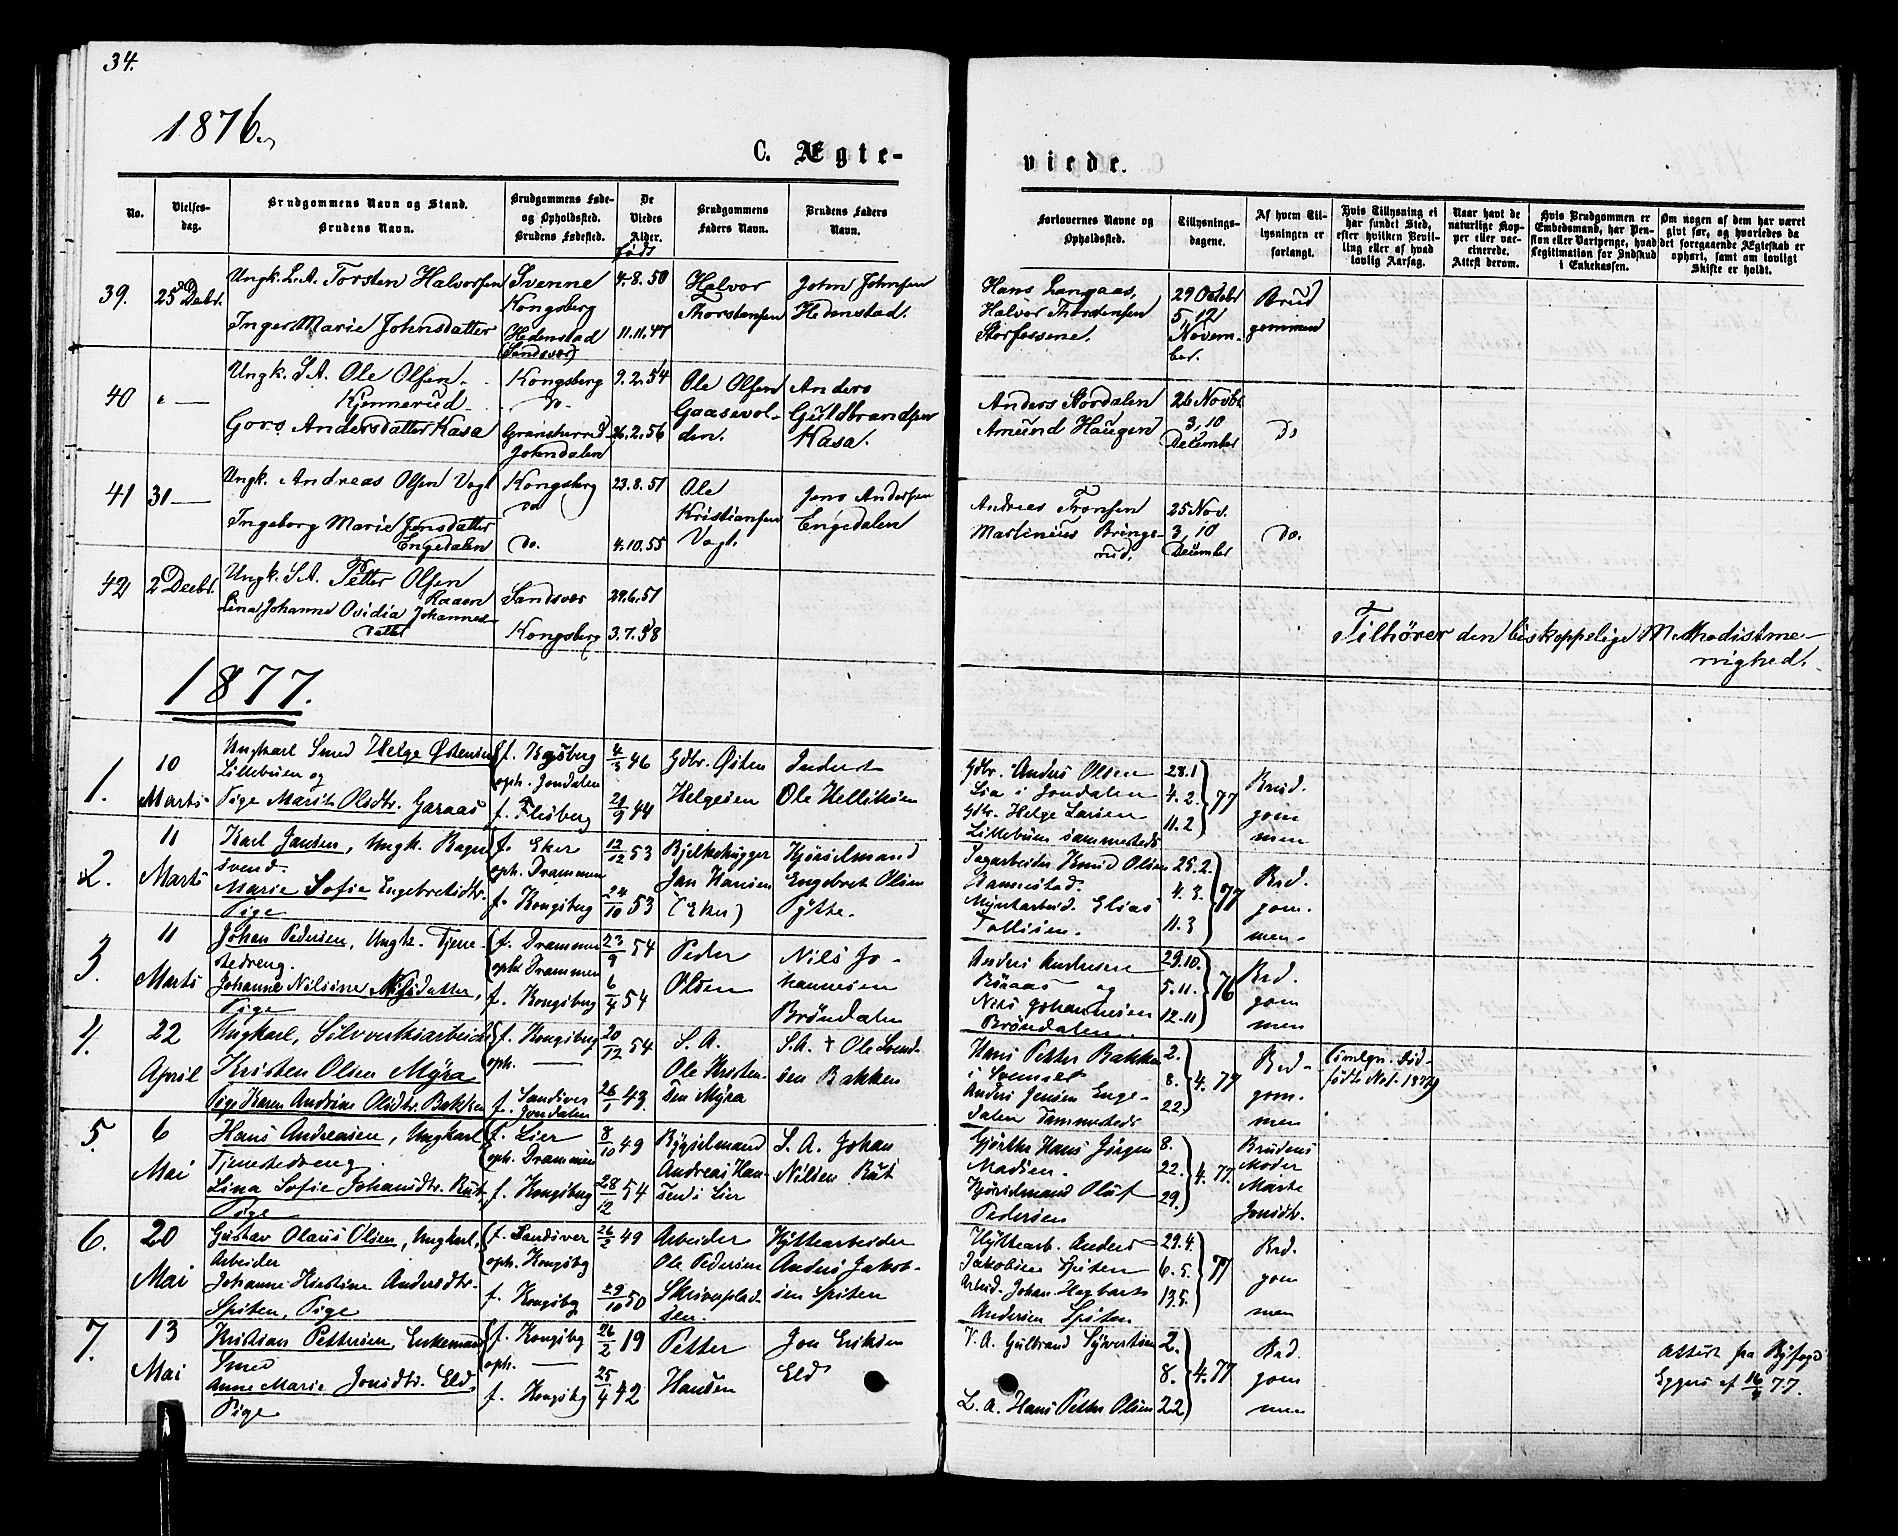 34.
1876.
C. Ægte-
viede.
No.
Vielses-
dag.
Brudgommens Navn og Stand.
Brudens Navn.
Brudgommens Føde-
og Opholdssted.
Brudens Fødested.
De
Viedes
Alder.
født
Brudgommens
Faders Navn.
Brudens Faders
Navn.
Forlovernes Navne og
Opholdssted.
Tillysnings-
dagene.
Af hvem Til-
lysningen er
forlangt.
Hvis Tillysning ei
har fundet Sted,
efter hvilken Bevil-
ling eller af hvad
lovlig Aarsag.
Naar havt de
naturlige Kop-
per eller vac-
cinerede.
Attest derom.
Hvis Brudgommen er
Embedsmand, har Pen-
sion eller Vartpenge, hvad
Legitimation for Indskud
i Enkekassen.
Om nogen af dem har været
gift før, og hvorledes da
det foregaaende Ægteskab er
ophørt, samt om lovligt
Skifte er holdt.
39.
25 Decbr.
Ungk. S.A. Torsten Halvorsen
Inger Marie Johnsdatter
Svenne
Kongsberg
Hedenstad
(Sandsvær)
4.8.50
11.11.47
Halvor
Thorstensen
John Johnsen
Hedenstad.
Hans Langaas,
Halvor Thorstensen
Storfossene.
29 Octobr
5, 12
Novem-
ber.
Brud
gommen
40
" —
Ungk. S.A. Ole Olsen
Kjennerud
Goro Andersdatter Kasa
Kongsberg
do.
Gransherred
Johndalen
9.2.54
26.2.56
Ole Olsen
Gaasevol-
den.
Anders
Guldbrandsen
Kasa.
Anders Stordalen
Amund Haugen
26 Novbr
3, 10
December
Do
41
31 —
Ungk. Andreas Olsen Vogt
Ingeborg Marie Jensdatter
Engedalen
Kongsberg
do
Do.
23.8.51
4.10.55
Ole
Kristiansen
Vogt.
Jens Andersen
Engedalen
Andreas Fransen
Martinius Brings-
rud.
25 Nov.
3, 10
December
Do.
42
2 Decbr.
Ungk. S.A. Petter Olsen
Raaen
Lina Johanne Ovidia Johannes-
datter
Sandsvær
Kongsberg
29.6.51
3.7.58
Tilhører den biskoppelige Methodistme-
nighed.
1877.
1.
10
Marts
Ungkarl Smed Helge Østensen
Lillebuen og
Pige Marit Olsdtr. Garaas
f. Kgsberg
oph. Jondalen
f. Flesberg
4/3 46
21/9 44
Gdbr. Østen
Helgesen
Inderst
Ole Helliksen
Gdbr. Anders Olsen
Lia i Jondalen
Gdbr. Helge Larsen
Lillebuen sammesteds
28.1
4.2.
11.2
77
Brud.
gom
men
2.
11
Marts
Karl Jansen, Ungk. Bager
svend.
Marie Sofie Engebretsdtr.
Pige
f. Eker
oph. Drammen
f. Kongsberg
12/12 53
24/10 53
Bjelkehugger
Jan Hansen
(Eker)
Kjørselmand
Engebret Olsen
Pytte.
Sagarbeider Knud Olsen
Stamnestad.
Myntarbeid. Elias
Tollisen.
25.2.
4.3.
11.3
77
Brd.
gom.
men.
3.
11
Marts
Johan Pedersen, Ungk. Tjene
stedreng.
Johanne Nilsine Nilsdatter,
Pige
f. Drammen
oph. Drammen
f. Kongsberg
23/9 54
6/4 54
Peder
Olsen
Nils Jo-
hannesen
Brøndalen
Anders Andersen
Røraas og
Nils Johannesen
Brøndalen.
29.10.
5.11.
12.11
76
Brd.
gom
men
4.
22
April
Ungkarl, Sølvverksarbeider
Kristen Olsen Myra
Pige Karen Andrine Olsdtr. Bakken
f. Kongsberg
oph. —
f. Sandsver
f. Jondalen
20/12 54
26/1 43.
S.A.
Ole Kristen-
sen Myra
S.A. † Ole Svend-
sen Bakken
Hans Petter Bakken
i Svenset
Anders Jensen Enge-
dalen Sammesteds
2.
8.
22.
4. 77
Brd-
gom.
men
5.
6
Mai
Hans Andreasen, Ungkarl
Tjenestedreng
Lina Sofie Johansdtr. Rut,
Pige
f. Lier
oph. Drammen
f. Kongsberg
8/10 49
28/12 54
Bygselmand
Andreas Han-
sen i Lier
S.A. Johan
Nilsen Rut
Gjørtler Hans Jørgen
Madsen.
Kjørselmand Oluf
Pedersen
8.
22.
29.
4. 77.
Brudens
Moder
Marte
Jonsdtr.
6.
20
Mai
Gustav Olaus Olsen, Ungkarl,
Arbeider
Johanne Kirstine Andersdtr.
Spiten, Pige
f. Sandsver
oph. Kongsbg
f. Kongsbg
26/2 49
29/10 50
Arbeider
Ole Pedersen
Skriverplad-
sen.
Hyttearbeider
Anders Jakob-
sen Spiten
Hyttearb. Anders
Jakobsen Spiten
Arbeid. Johan Hegbart
Andersen Spiten
29.4.
6.5.
13.5.
77
Brd.
gom
men
7.
13
Mai
Kristian Pettersen, Enkemand
Smed
Anne Marie Jonsdtr. Eld,
Pige
f. Kongsbg
oph. —
f. Kongsbg
26/2 19
25/4 42
Petter
Hansen
Jon Eriksen
Eld
V.A. Gulbrand Syvertsen
L.A. Hans Petter Olsen
2.
8.
22
4. 77
Brd.
gom
men
Attest fra Byfoged
Eggers af 16/3 77.